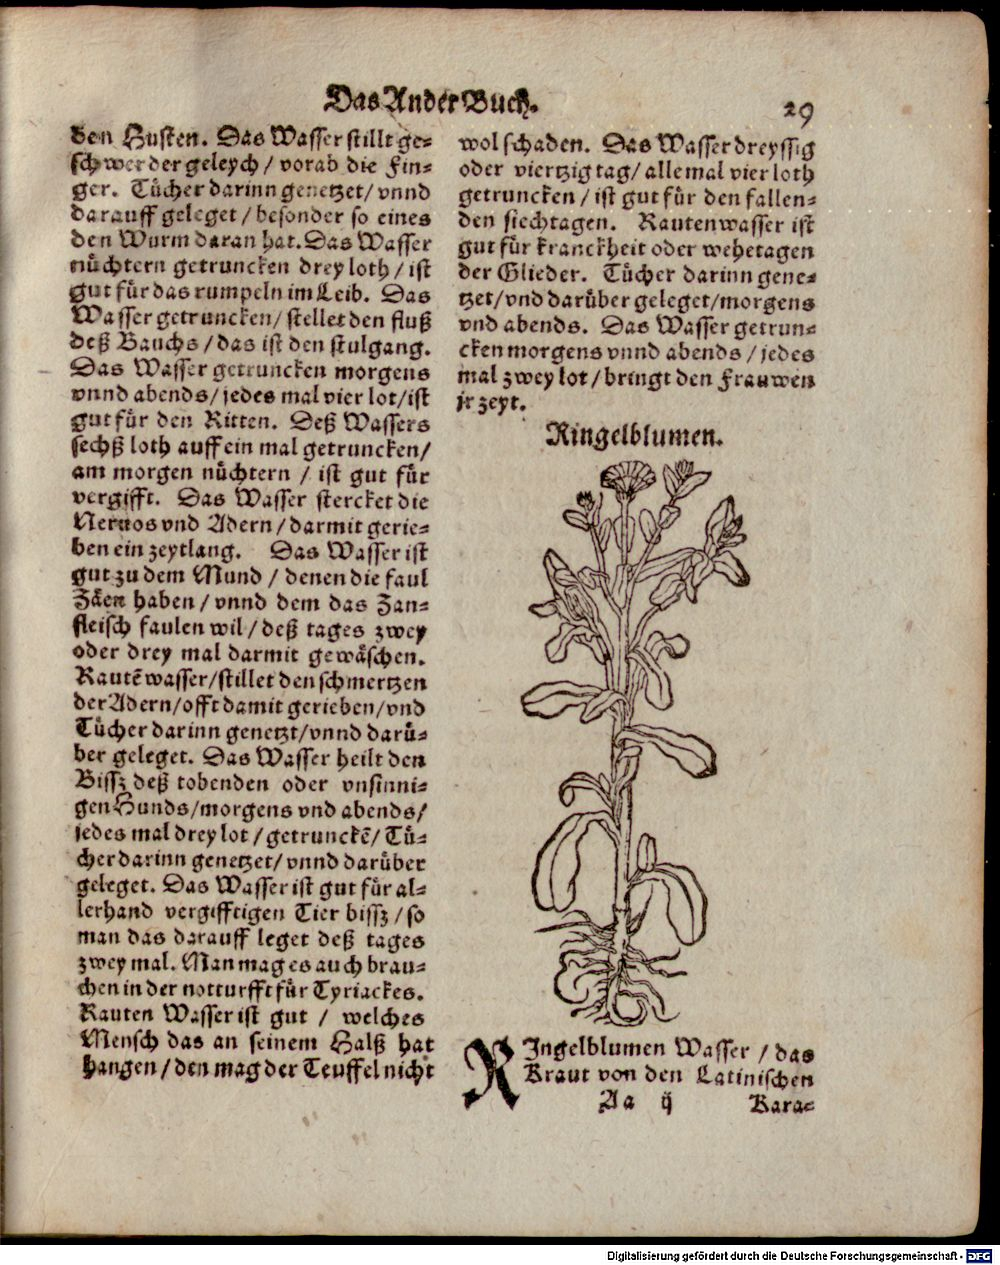 Das Ander Buch.
29
den Husten. Das Wasser stillt ge-
schwer der geleych / vorab die Fin-
ger. Tücher darinn genetzet / vnnd
darauff geleget / besonder so eines
den Wurm daran hat. Das Wasser
nüchtern getruncken drey loth / ist
gut für das rumpeln im Leib. Das
Wasser getruncken / stellet den fluß
deß Bauchs / das ist den stulgang.
Das Wasser getruncken morgens
vnnd abends / jedes mal vier lot / ist
gut für den Ritten. Deß Wassers
sechß loth auff ein mal getruncken /
am morgen nüchtern / ist gut für
vergifft. Das Wasser stercket die
Neruos vnd Adern / darmit gerie-
ben ein zeytlang. Das Wasser ist
gut zu dem Mund / denen die faul
Zäen haben / vnnd dem das Zan-
fleisch faulen wil / deß tages zwey
oder drey mal darmit gewäschen.
Rautē wasser / stillet den schmertzen
der Adern / offt damit gerieben / vnd
Tücher darinn genetzt / vnnd darü-
ber geleget. Das Wasser heilt den
Bissz deß tobenden oder vnsinni-
gen Hunds / morgens vnd abends /
jedes mal drey lot / getrunckē / Tü-
cher darinn genetzet / vnnd darüber
geleget. Das Wasser ist gut für al-
lerhand vergifftigen Tier bissz / so
man das darauff leget deß tages
zwey mal. Man mag es auch brau-
chen in der notturfft für Tyriackes.
Rauten Wasser ist gut / welches
Mensch das an seinem Halß hat
hangen / den mag der Teuffel nicht
wol schaden. Das Wasser dreyssig
oder viertzig tag / allemal vier loth
getruncken / ist gut für den fallen-
den siechtagen. Rautenwasser ist
gut für kranckheit oder wehetagen
der Glieder. Tücher darinn gene-
tzet / vnd darüber geleget / morgens
vnd abends. Das Wasser getrun-
cken morgens vnnd abends / jedes
mal zwey lot / bringt den Frauwen
jr zeyt.
Ringelblumen.
RIngelblumen Wasser / das
Kraut von den Latinischen
Aa ij Kara-
Digitalisierung gefördert durch die Deutsche Forschungsgemeinschaft - DFG